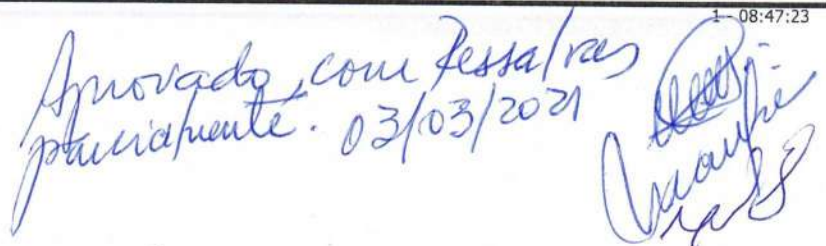 1 - 08:47:23
Aprovado, com Ressalvas
parcialmente. 03/03/2021